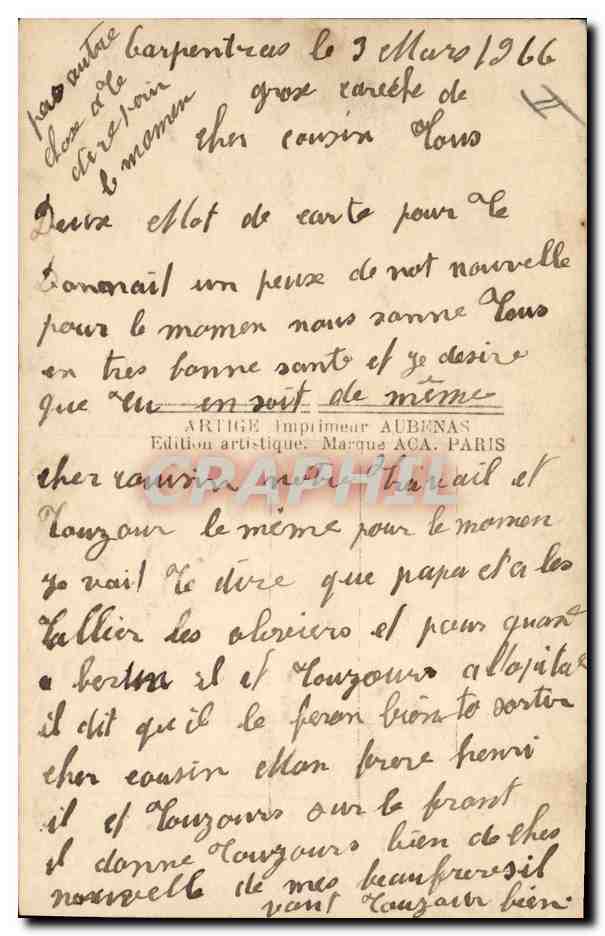 Carpentras le 3 Mars 1966
grose careche de
cher cousin Tous
Deux Mot de carte pour Te
Donnait un peux de not nouvelle
pour le momen nous somme Tous
en tres bonne sante et je desire
que Tu en soit de même
ARTIGE Imprimeur AUBENAS
Edition artistique. Marque ACA. PARIS
CPAPHIL
cher cousin notre travail et
Touzour le même pour le momen
je vait Te dire que papa et a les
Tallier les oliviers et pour quant
a bertin il et Touzours a lopital
il dit qu il le feron bien to sortir
cher cousin Mon frere henri
il et Touzours sur le front
il donne Touzours bien de ches
nouvelle de mes beaufreres il
vont Touzour bien
pas autre
chose a Te
dire pour
le momen
II